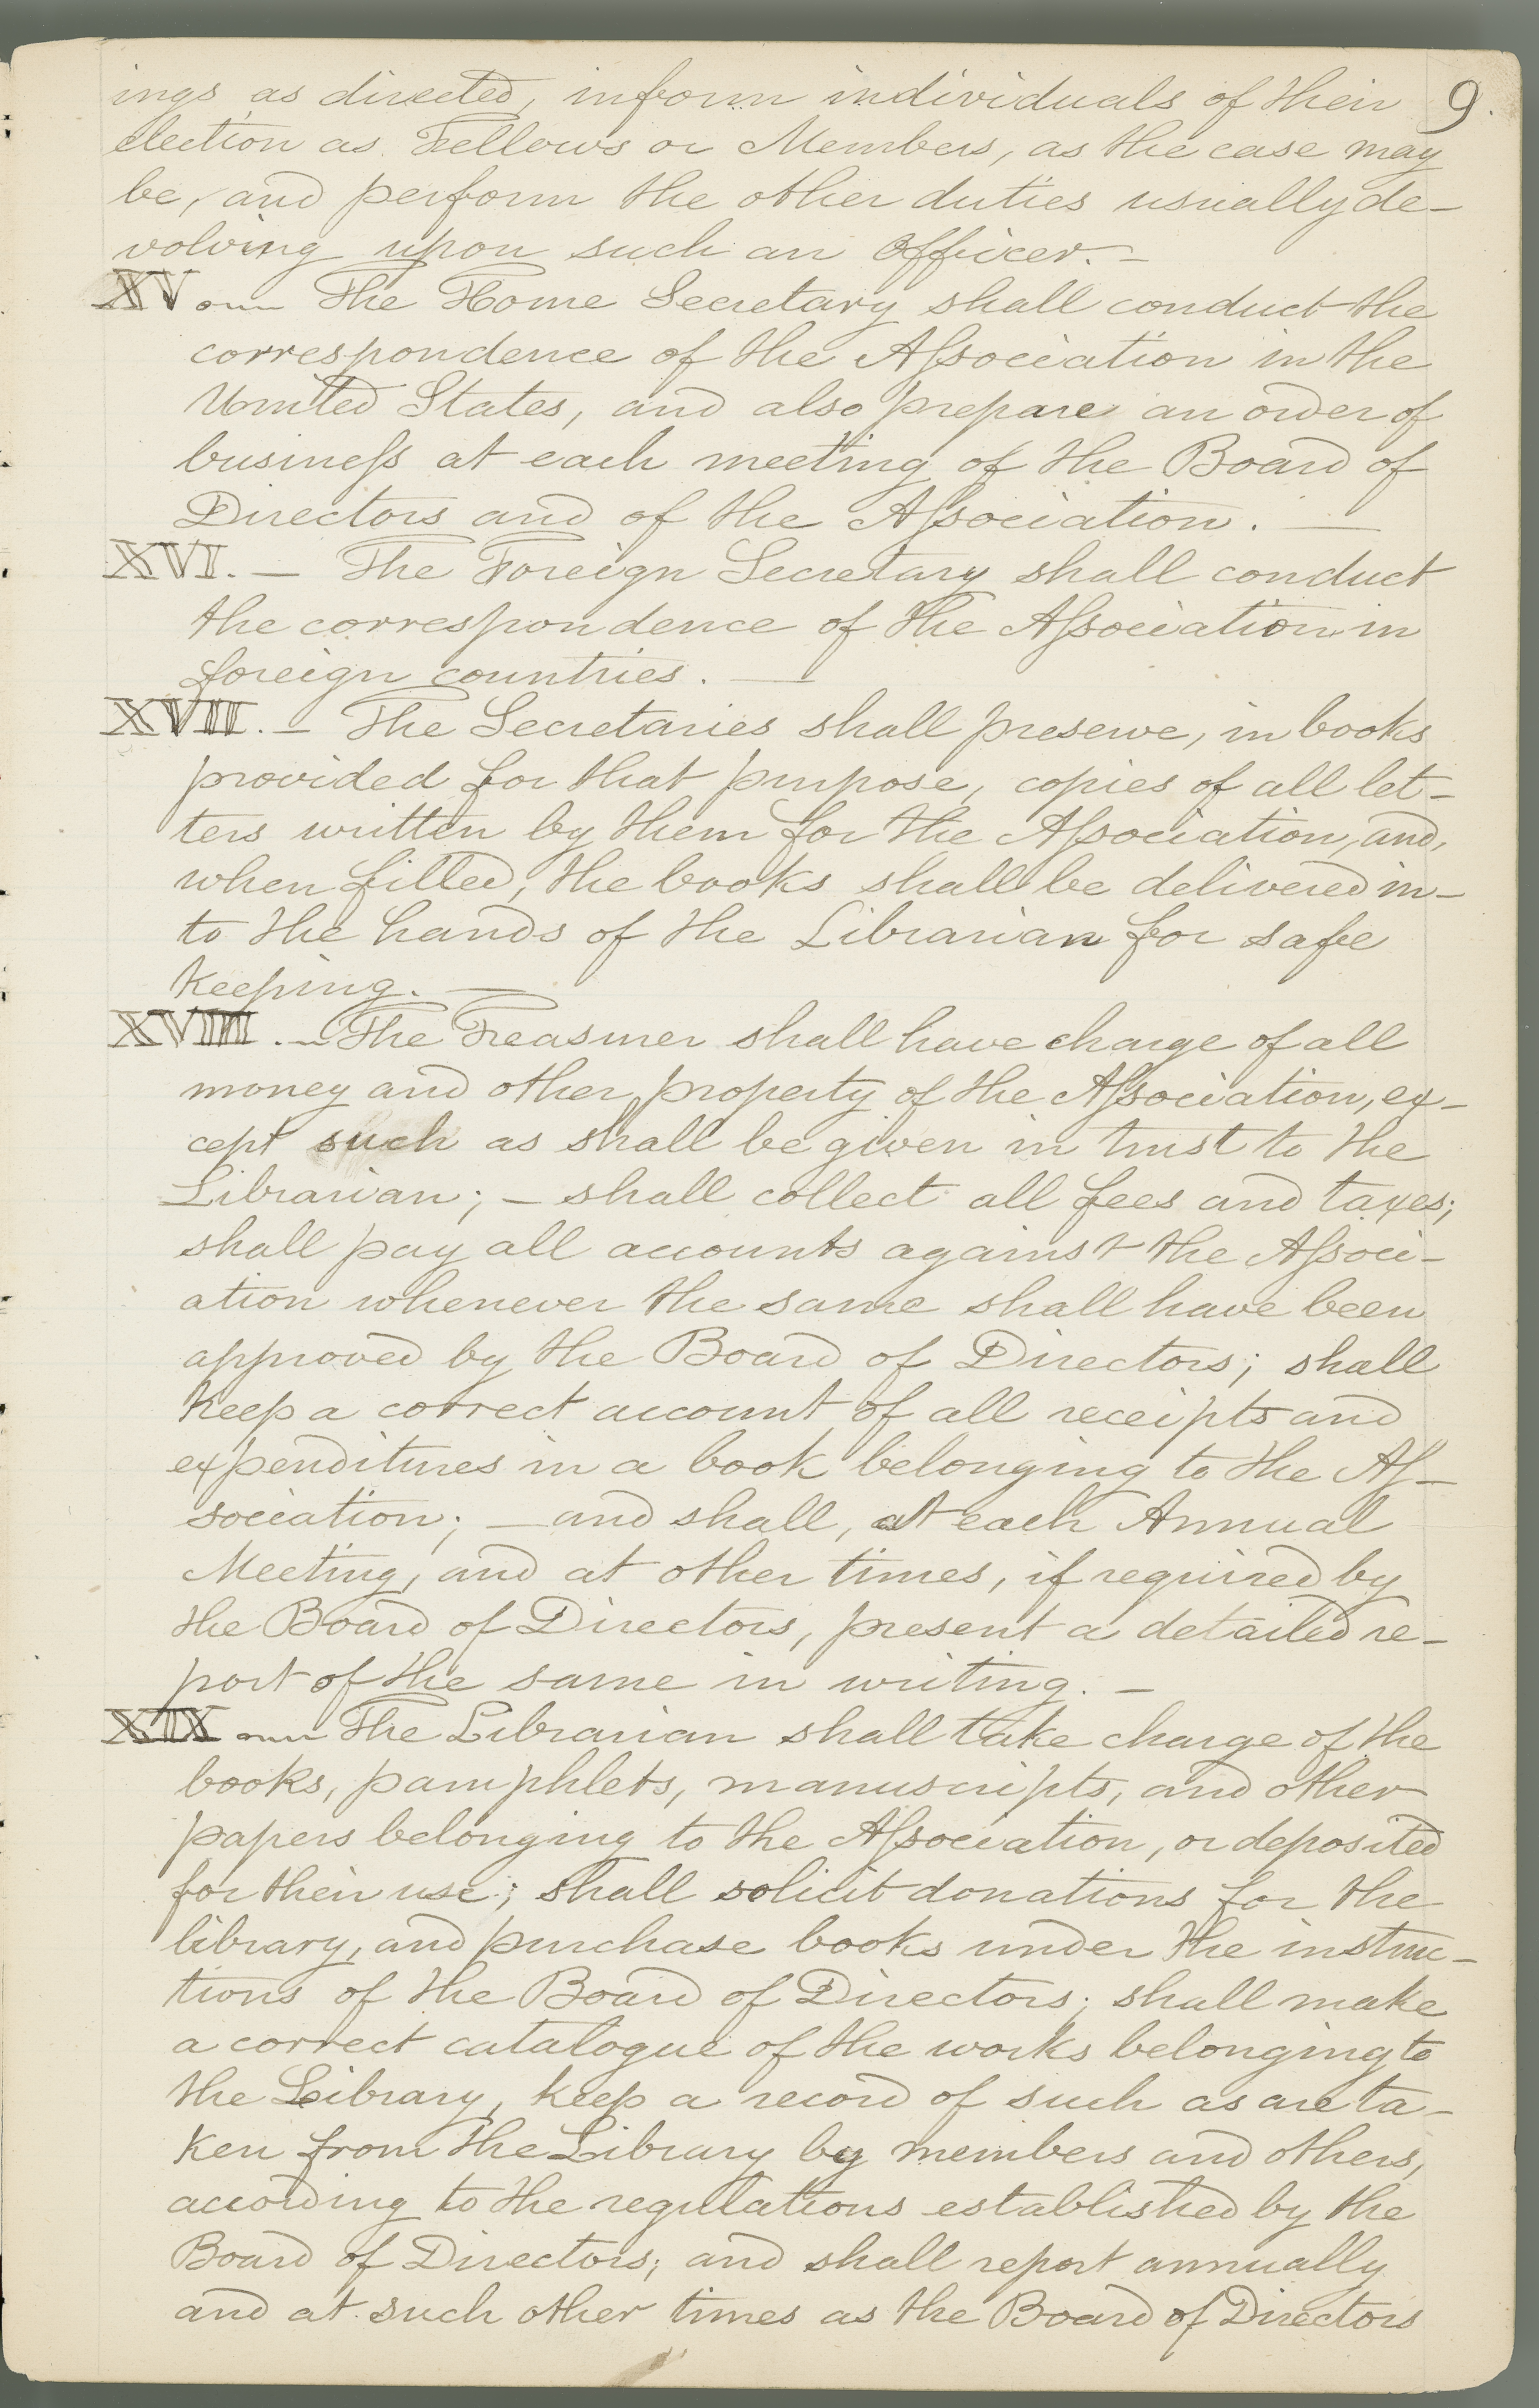 9.
ings as directed, inform individuals of their
election as Fellows or Members, as the case may
be, and perform the other duties usually de-
volving upon such an Officer. —
XV — The Home Secretary shall conduct the
correspondence of the Aſsociation in the
United States, and also prepare an order of
busineſs at each meeting of the Board of
Directors and of the Aſsociation. —
XVI. — The Foreign Secretary shall conduct
the correspondence of the Aſsociation in
foreign countries. —
XVII. — The Secretaries shall preserve, in books
provided for that purpose, copies of all let-
ters written by them for the Aſsociation, and,
when filled, the books shall be delivered in-
to the hands of the Librarian for safe
keeping. —
XVIII. — The Treasurer shall have charge of all
money and other property of the Aſsociation, ex-
cept such as shall be given in trust to the
Librarian; — shall collect all fees and taxes;
shall pay all accounts against the Aſsoci-
ation whenever the same shall have been
approved by the Board of Directors; shall
keep a correct account of all receipts and
expenditures in a book belonging to the Aſ-
sociation; — and shall, at each Annual
Meeting, and at other times, if required by
the Board of Directors, present a detailed re-
port of the same in writing. —
XIX — The Librarian shall take charge of the
books, pamphlets, manuscripts, and other
papers belonging to the Aſsociation, or deposited
for their use; shall solicit donations for the
library, and purchase books under the instruc-
tions of the Board of Directors; shall make
a correct catalogue of the works belonging to
the Library, keep a record of such as are ta-
ken from the Library by members and others,
according to the regulations established by the
Board of Directors; and shall report annually
and at such other times as the Board of Directors